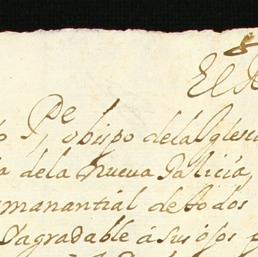 El
Pe, obispo dela Iglesi
dela nueva Galicia,
manantial de todos
agradable á sus ojos